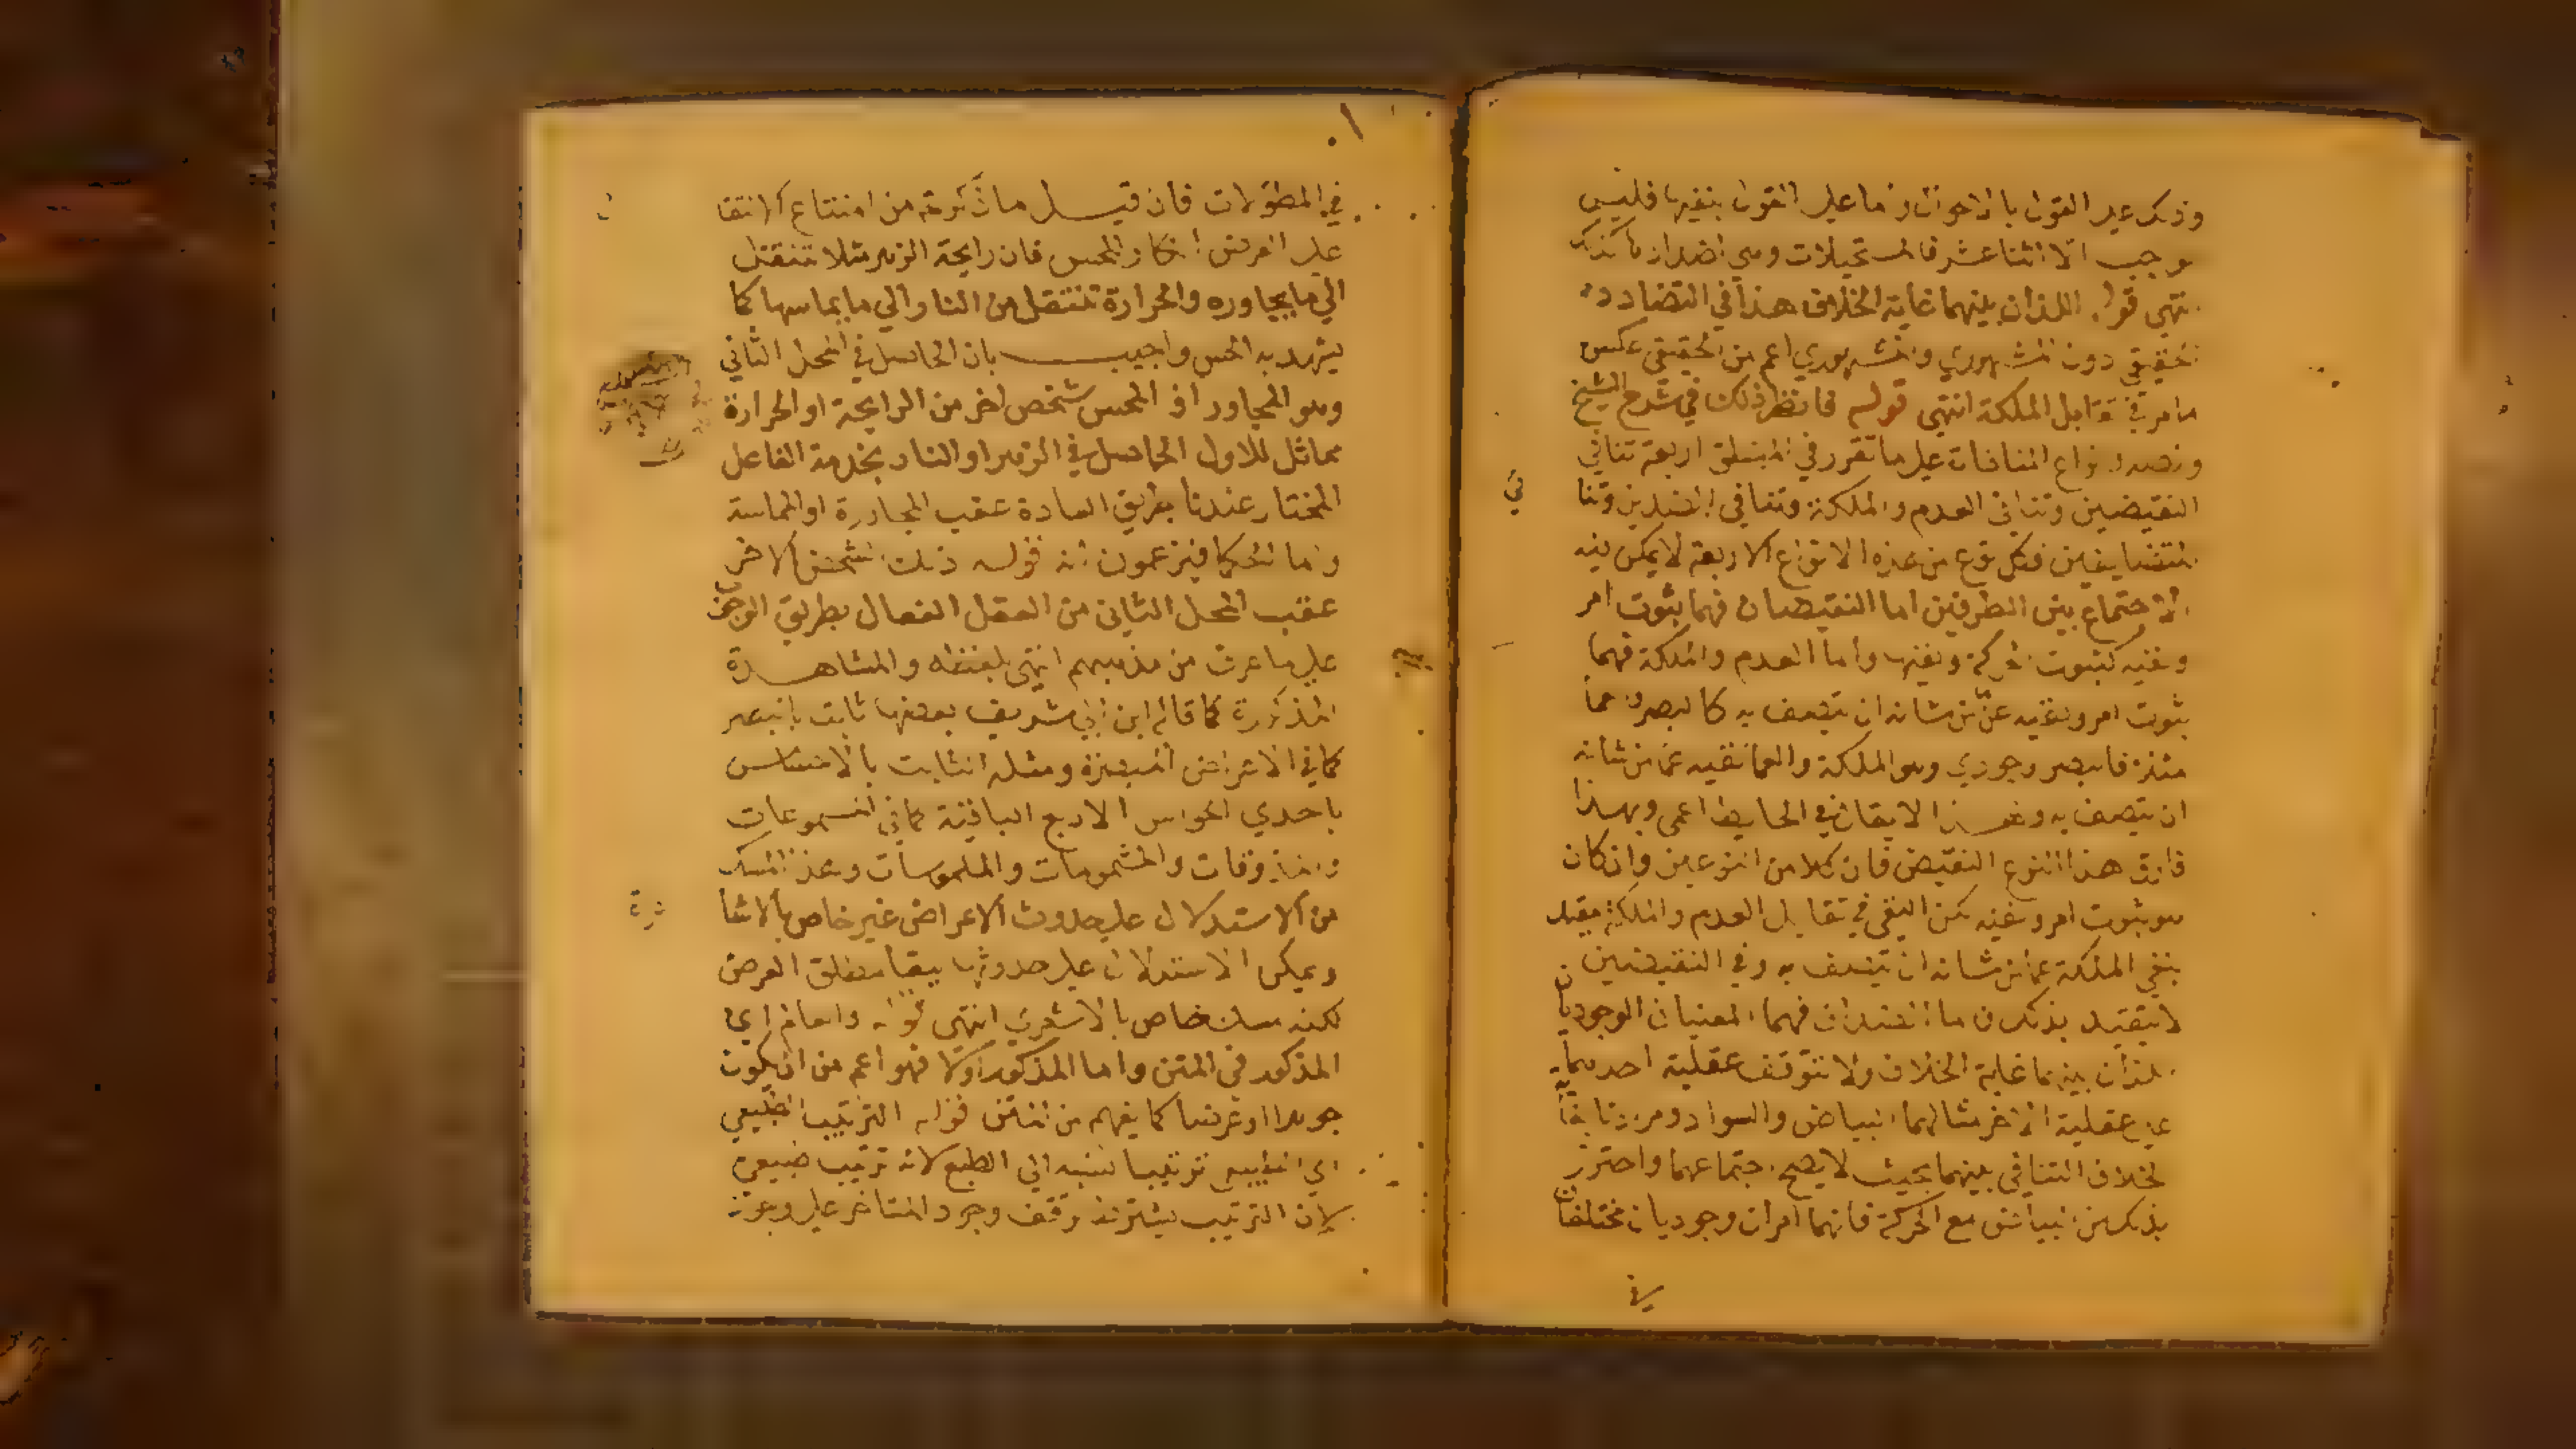 وذلك على القول بالاحوال واما على القول بنفيها فليس
بواجب الا اثنا عشر فالمستحيلات وهي اضدادها كذلك
انتهى قوله اللذان بينهما غاية الخلاف هذا في التضاد
الحقيقي دون المشهوري والمشهوري اعم من الحقيقي عكس
ما مر في تقابل الملكة انتهى قوله فانظر ذلك في شرح الشيخ
ونصه انواع المنافات على ما تقرر في المنطق اربعة تنافي
النقيضين وتنافي العدم والملكة وتنافي الضدين وتنا
المتضايفين فكل نوع من هذه الانواع الاربعة لا يمكن فيه
الاجتماع بين الطرفين اما النقيضان فهما ثبوت امر
ونفيه كثبوت الحركة ونفيها واما العدم والملكة فهما
ثبوت امر ونفيه عن من شانه ان يتصف به كالبصر والعما
مثلا فالبصر وجودي وهو الملكة والعما نفيه عما من شانه
ان يتصف به ولهذا لا يقال في الحايط اعمى وبهذا
فارق هذا النوع النقيض فان كلا من النوعين وان كان
هو ثبوت امر ونفيه لكن النفي في تقابل العدم والملكة مقيد
بنفي الملكة عما من شانه ان يتصف به وفي النقيضين
لا يتقيد بذلك واما الضدان فهما المعنيان الوجوديان
اللذان بينهما غاية الخلاف ولا تتوقف عقلية احدهما
على عقلية الاخر مثالهما البياض والسواد ومرادنا بغاية
الخلاف التنافي بينهما بحيث لا يصح اجتماعهما واحترز
بذلك من البياض مع الحركة فانهما امران وجوديان مختلفان
في المطولات فان قيل ما ذكرته من امتناع الانتقا
على العرض انكار المحس فان رايحة الزهر مثلا تنتقل
الي ما يجاوره والحرارة تنتقل من النار الي ما يماسها كما
يشهد به الحس واجيب بان الحاصل في المحل الثاني
وهو المجاور او المحس شخص اخر من الرايحة او الحرارة
مماثل للاول الحاصل في الزهر او النار بخدمة الفاعل
المختار عندنا بطريق العادة عقب المجاورة او المماسة
واما الحكما فيزعمون ان قوله ذلك الشخص الاخر
عقب المحل الثاني من العقل الفعال بطريق الوجوب
على ما عرف من مذهبهم انتهى بلفظه والمشاهدة
المذكورة كما قاله ابن ابي شريف بعضها ثابت بالبصر
كما في الاعراض المبصرة ومثله الثابت بالاحساس
باحدي الحواس الاربع الباقية كما في المسموعات
والمذوقات والمشمومات والملموسات وهذا المسلك
من الاستدلال على حدوث الاعراض غير خاص بالاشا
ويمكن الاستدلال على حدوثها ببقا مطلق العرض
لكنه مسلك خاص بالاشعري انتهى قوله والعالم اي
المذكور في المتن واما المذكور اولا فهو اعم من ان يكون
جوهرا او عرضا كما يفهم من المتن قوله الترتيب الطبيعي
اي التابع ترتيبا نسبه الي الطبع لانه ترتيب طبيعي
لان الترتيب يشترط توقف وجود المتاخر على وجود